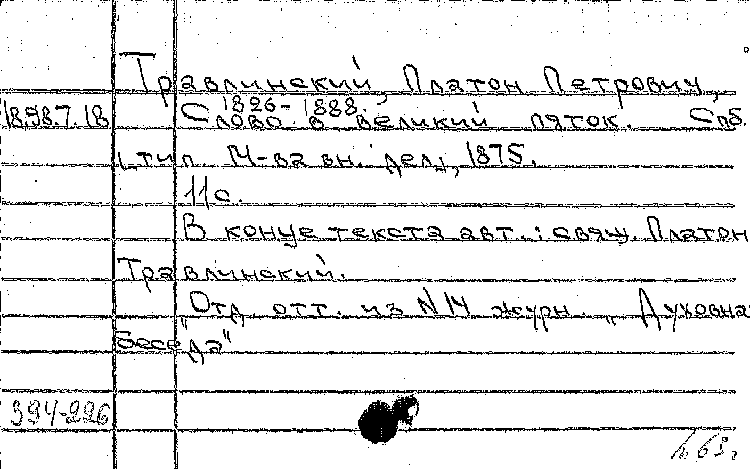 Травлинский, Платон Петрович,
1826-1888.
18.98.7.18 Слово в великий пяток. Спб.
[тип. М-ва вн. дел], 1875.
11 с.
В конце текста авт.: свящ. Платон
Травлинский.
Отд. отт. из N14 журн. "Духовна
беседа"
394-226